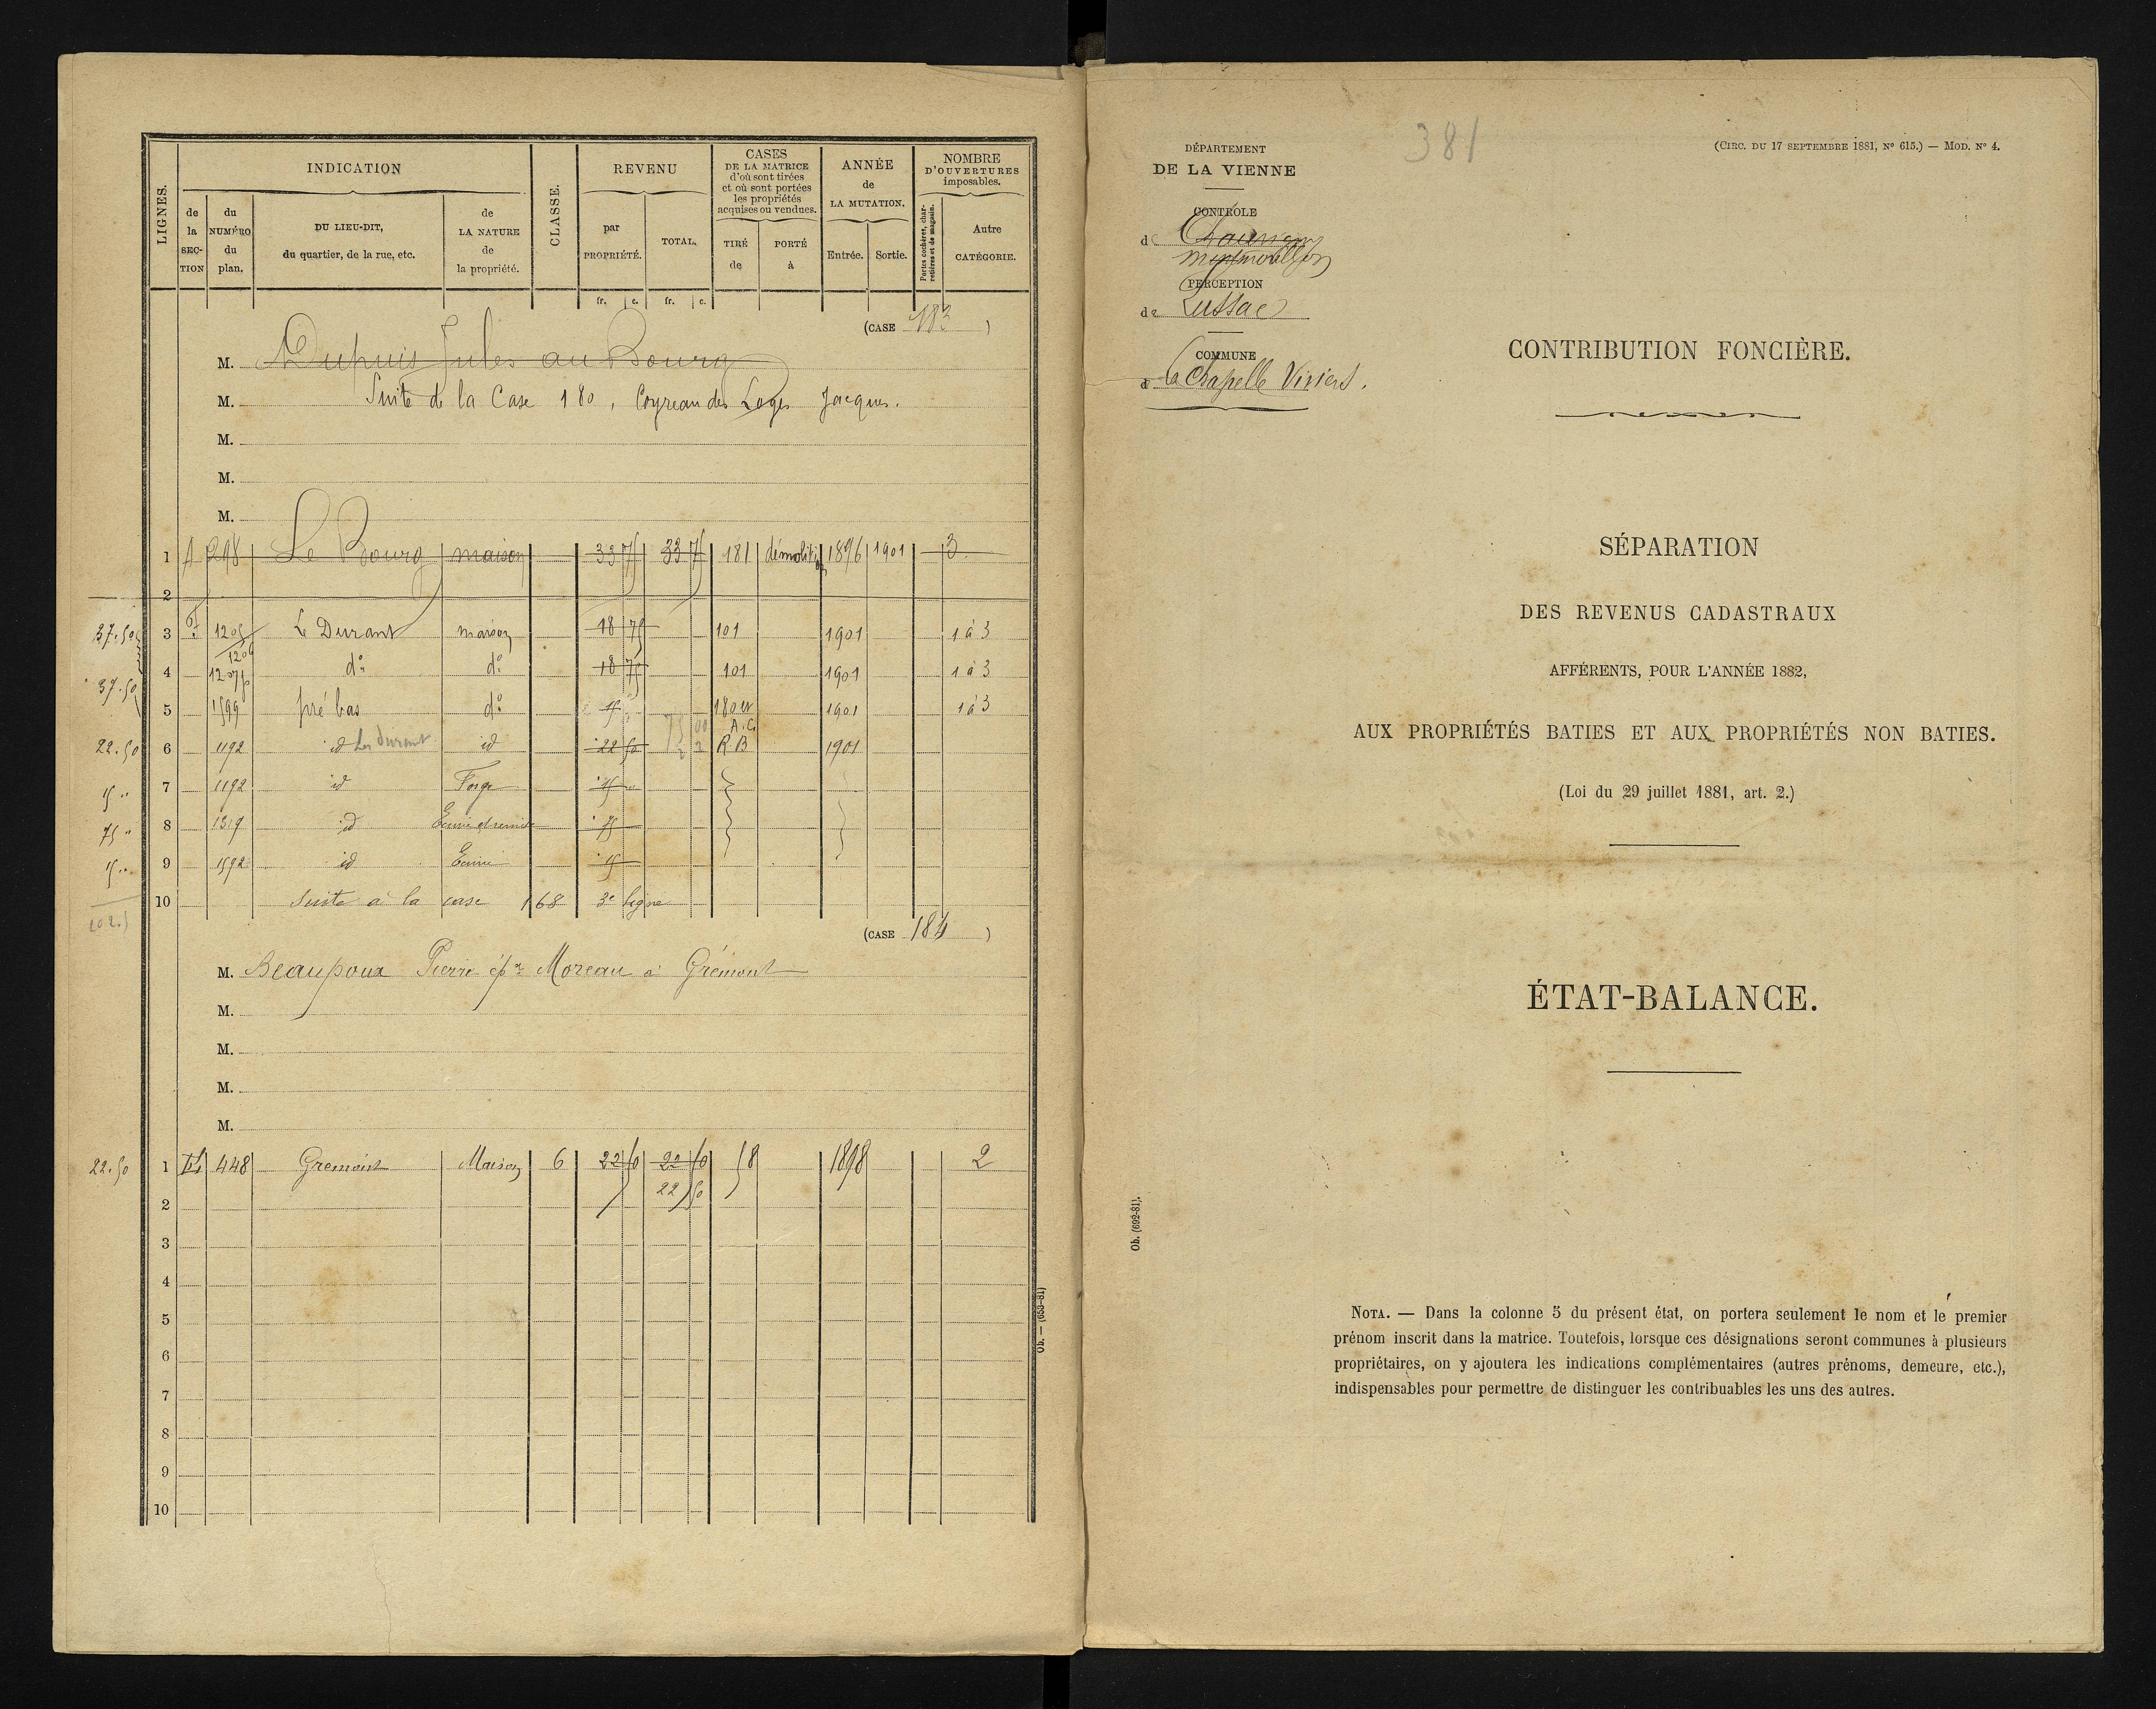 LIGNES.
INDICATION
de la SECTION
du NUMÉRO du plan.
DU LIEU-DIT, du quartier, de la rue, etc.
de LA NATURE de la propriété.
CLASSE.
REVENU
par PROPRIÉTÉ.
TOTAL.
CASES DE LA MATRICE d'où sont tirées et où sont portées les propriétés acquises ou vendues.
TIRÉ de
PORTÉ à
ANNÉE de LA MUTATION.
Entrée.
Sortie.
NOMBRE D'OUVERTURES imposables.
Portes cochères, charretières et de magasin.
Autre CATÉGORIE.
fr. c. fr. c.
(CASE 183)
M. Dupuis Jules au Bourg
M. Suite de la Case 180, Coyreau des Loges Jacques.
M.
M.
M.
1 A 298 Le Bourg maison 33 75 33 75 181 démolition 1896 1901 3
2
37.50 3 1205 1206 Le Durant maison 18 75 101 1901 1 à 3
37.50 4 1207p do do 18 75 101 1901 1 à 3
5 1599 pré bas do 15 180 et A.C. 1901 1 à 3
22.50 6 1192 id Les Durant id 22 50 R B 1901
15 " 7 1192 id Forge 15 "
75 " 8 1319 id Ecurie et remise 75
15 " 9 1592 id Ecurie 15
10 Suite à la case 168 3e ligne
(CASE 184)
M. Beaupoux Pierre épx Moreau à Grémont
M.
M.
M.
M.
22.50 1 448 Gremont Maison 6 22 50 22 50 58 1898 2
22 50
2
3
4
5
6
7
8
9
10
Ob. — (653-81)
381
(CIRC. DU 17 SEPTEMBRE 1881, No 615.) — MOD. No 4.
DÉPARTEMENT
DE LA VIENNE
CONTRÔLE
de
Montmorillon
PERCEPTION
de Lussac
COMMUNE
d La Chapelle Viviers.
CONTRIBUTION FONCIÈRE.
SÉPARATION
DES REVENUS CADASTRAUX
AFFÉRENTS, POUR L'ANNÉE 1882,
AUX PROPRIÉTÉS BATIES ET AUX PROPRIÉTÉS NON BATIES.
(Loi du 29 juillet 1881, art. 2.)
ÉTAT-BALANCE.
Ob. (692-81).
NOTA. — Dans la colonne 5 du présent état, on portera seulement le nom et le premier
prénom inscrit dans la matrice. Toutefois, lorsque ces désignations seront communes à plusieurs
propriétaires, on y ajoutera les indications complémentaires (autres prénoms, demeure, etc.),
indispensables pour permettre de distinguer les contribuables les uns des autres.